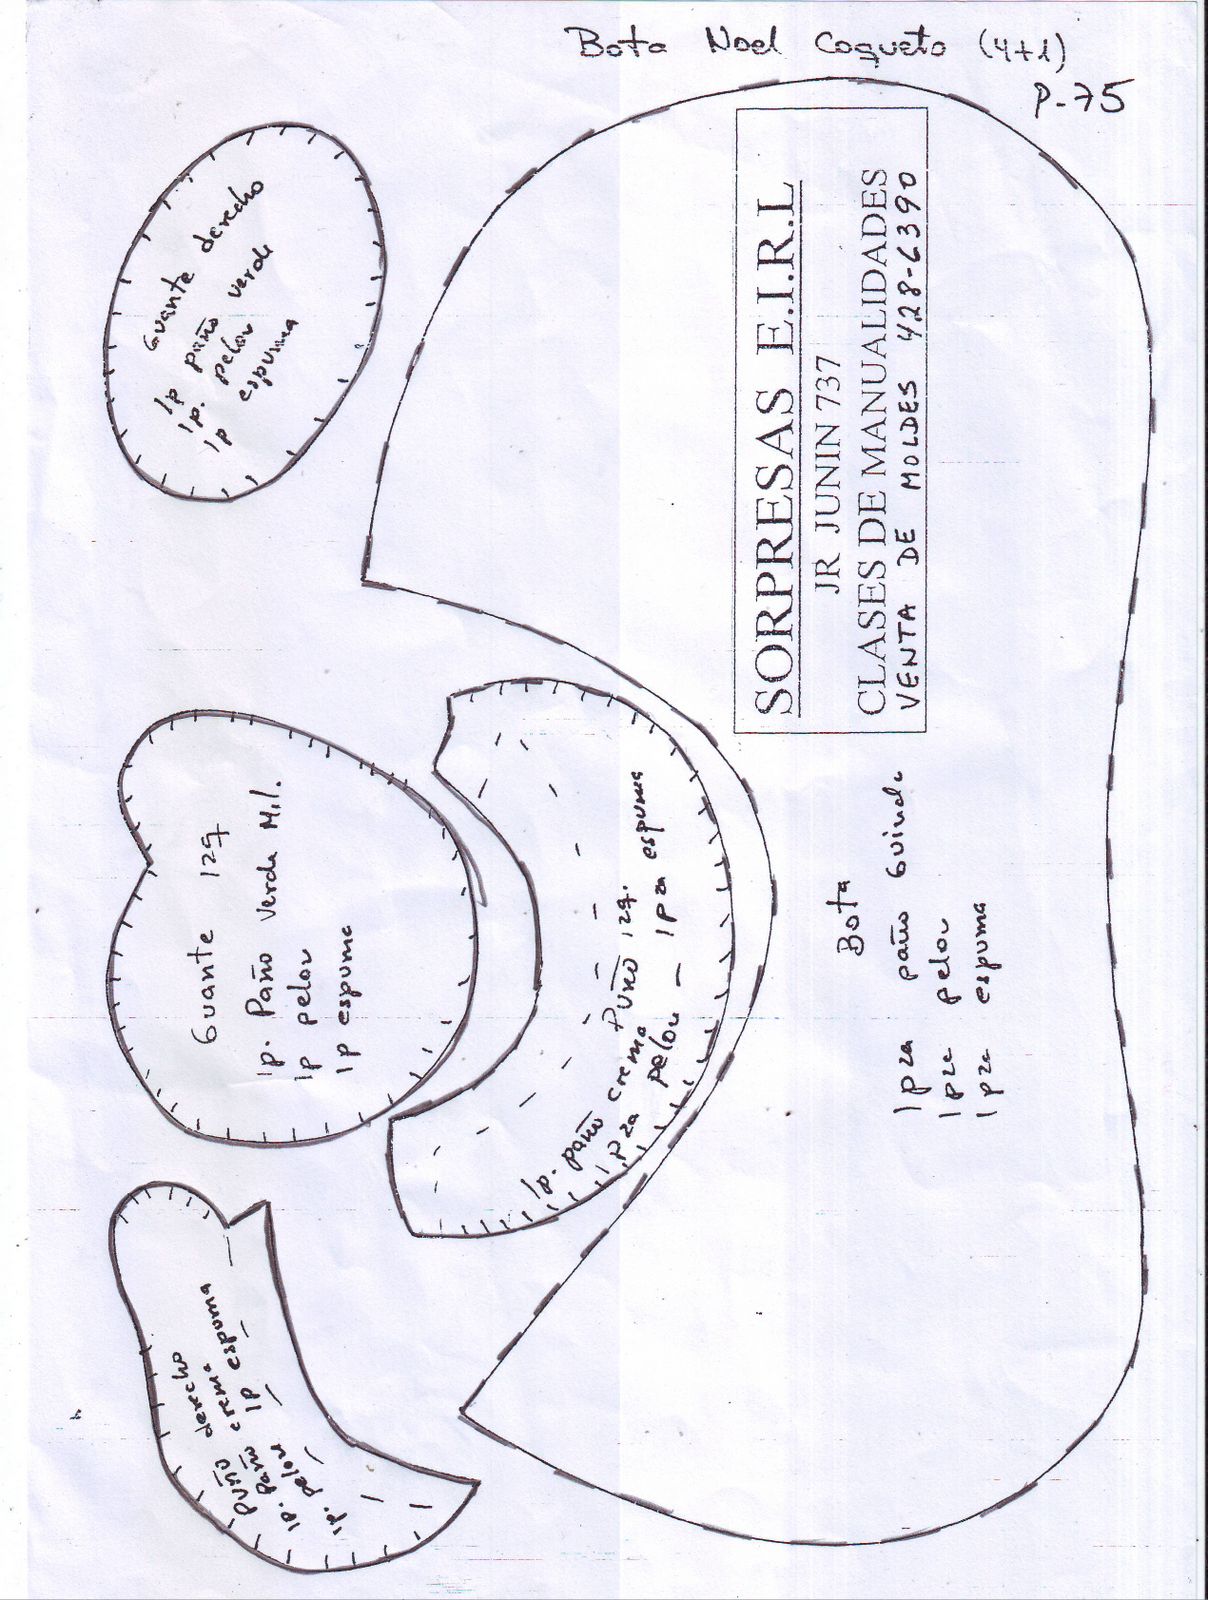 Bota Noel Coqueto (4+1)
P-75
SORPRESAS E.I.R.L
JR JUNIN 737
CLASES DE MANUALIDADES
VENTA DE MOLDES 428-6390
Guante derecho
1p paño verde
1p. pelou
1p espuma
Guante izq
1p. Paño verde Mil.
1p pelou
1p espuma
Puño izq.
1p. paño crema
1pza pelou - 1pza espuma
Bota
1pza paño Guinda
1pza pelou
1pza espuma
Puño derecho
1p. paño crema
1p. pelou 1p espuma